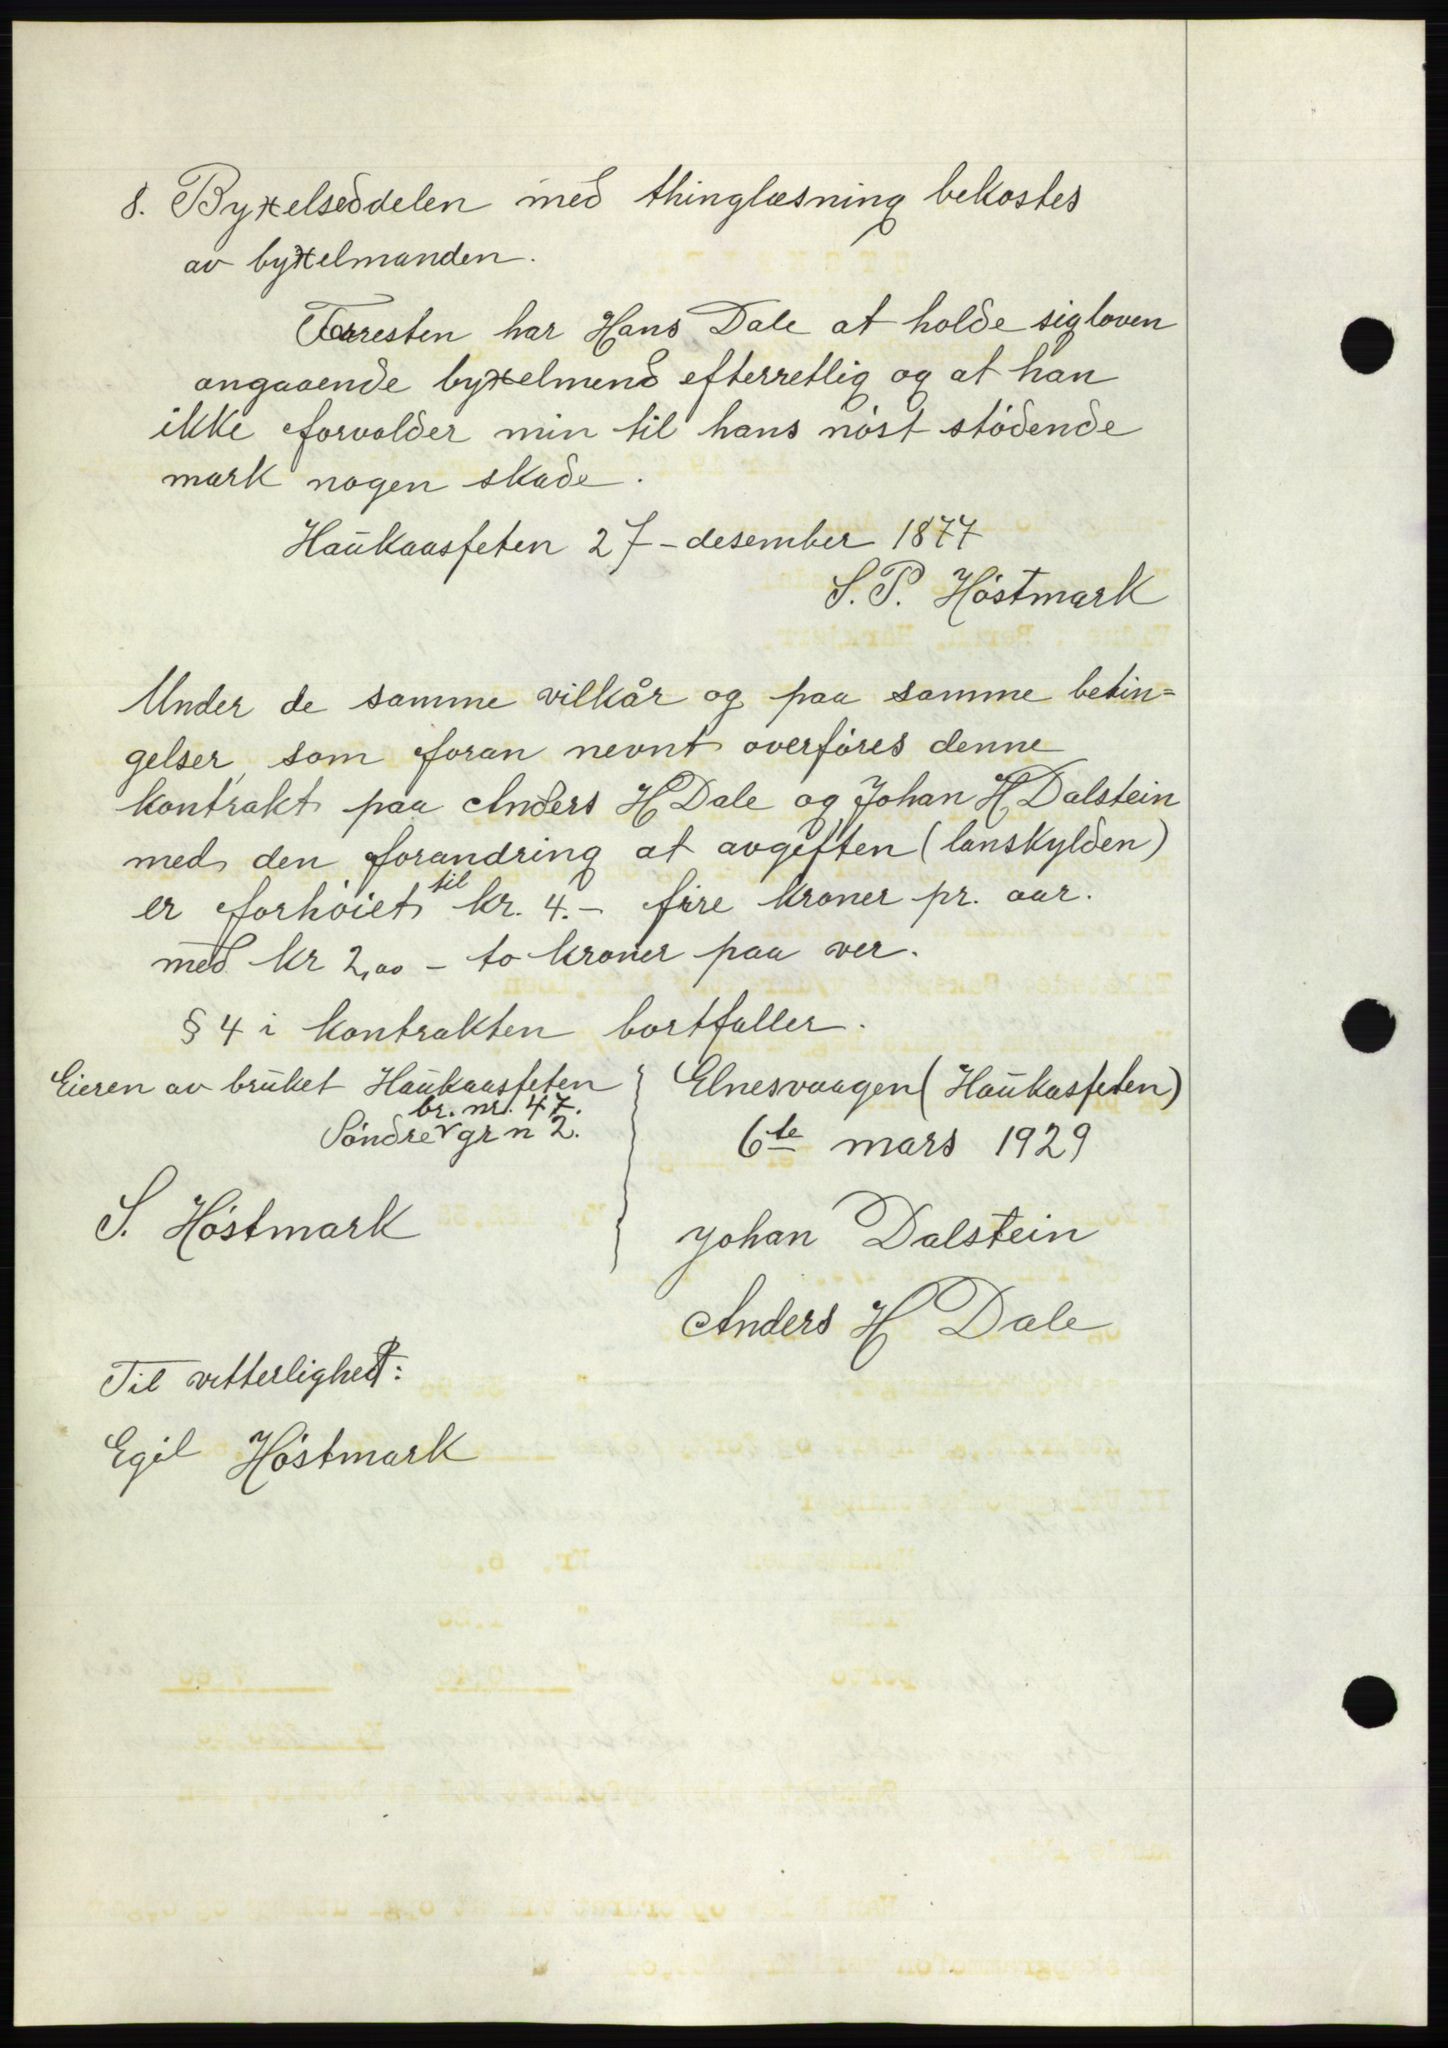 8. Byxelseddelen med thinglæsning bekostes
av byxelmanden.
Forresten har Hans Dale at holde sig loven
angaaende byxelmend efterretlig og at han
ikke forvolder min til hans nøst stødende
mark nogen skade.
Haukaasfeten 27 - desember 1877
S. P. Höstmark
Under de samme vilkår og paa samme betin=
gelser som foran nevnt overføres denne
kontrakt paa Anders H Dale og Johan H Dalstein
med den forandring at avgiften (lanskylden)
er forhøiet til kr. 4.- fire kroner pr. aar.
med kr 2,00 - to kroner paa ver.
§ 4 i kontrakten bortfaller.
Eieren av bruket Haukaasfeten
br. nr. 47.
Söndre gr n 2.
S. Höstmark
Elnesvaagen (Haukasfeten)
6te mars 1929
Johan Dalstein
Anders H Dale
Til vitterlighet:
Egil Höstmark